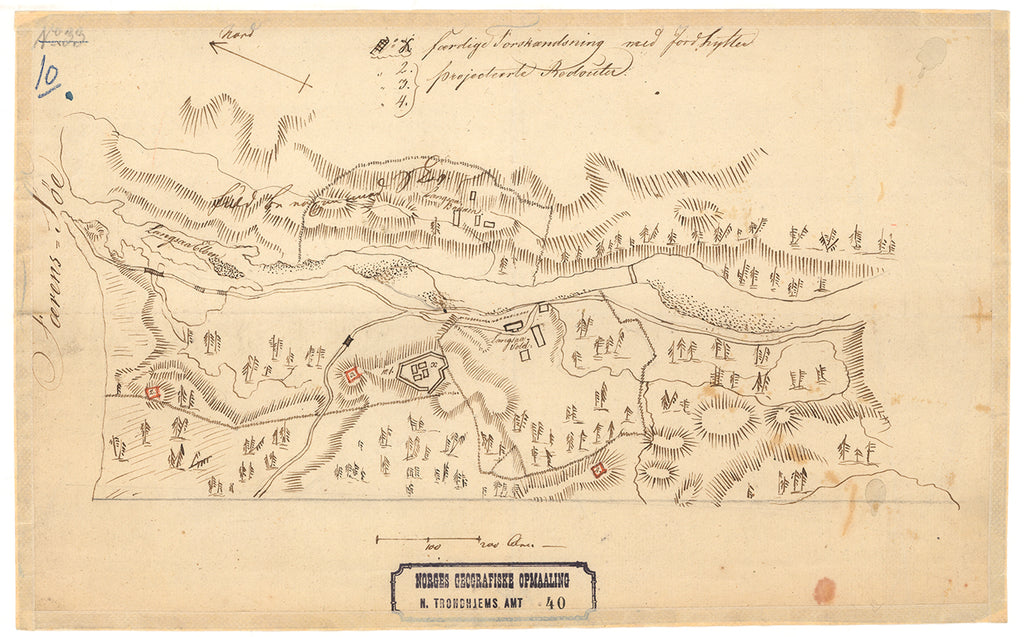 No 33
10
Nord
No 1. færdige Forskandsning med Jordhytter
" 2.
" 3. projecteerte Redouter.
" 4.
Færens-Søe
Langsaa Elv
Langsaa
Langsaa
Vold
100 200 Alner
NORGES GEOGRAFISKE OPMAALING
N. TRONDHJEMS AMT 40